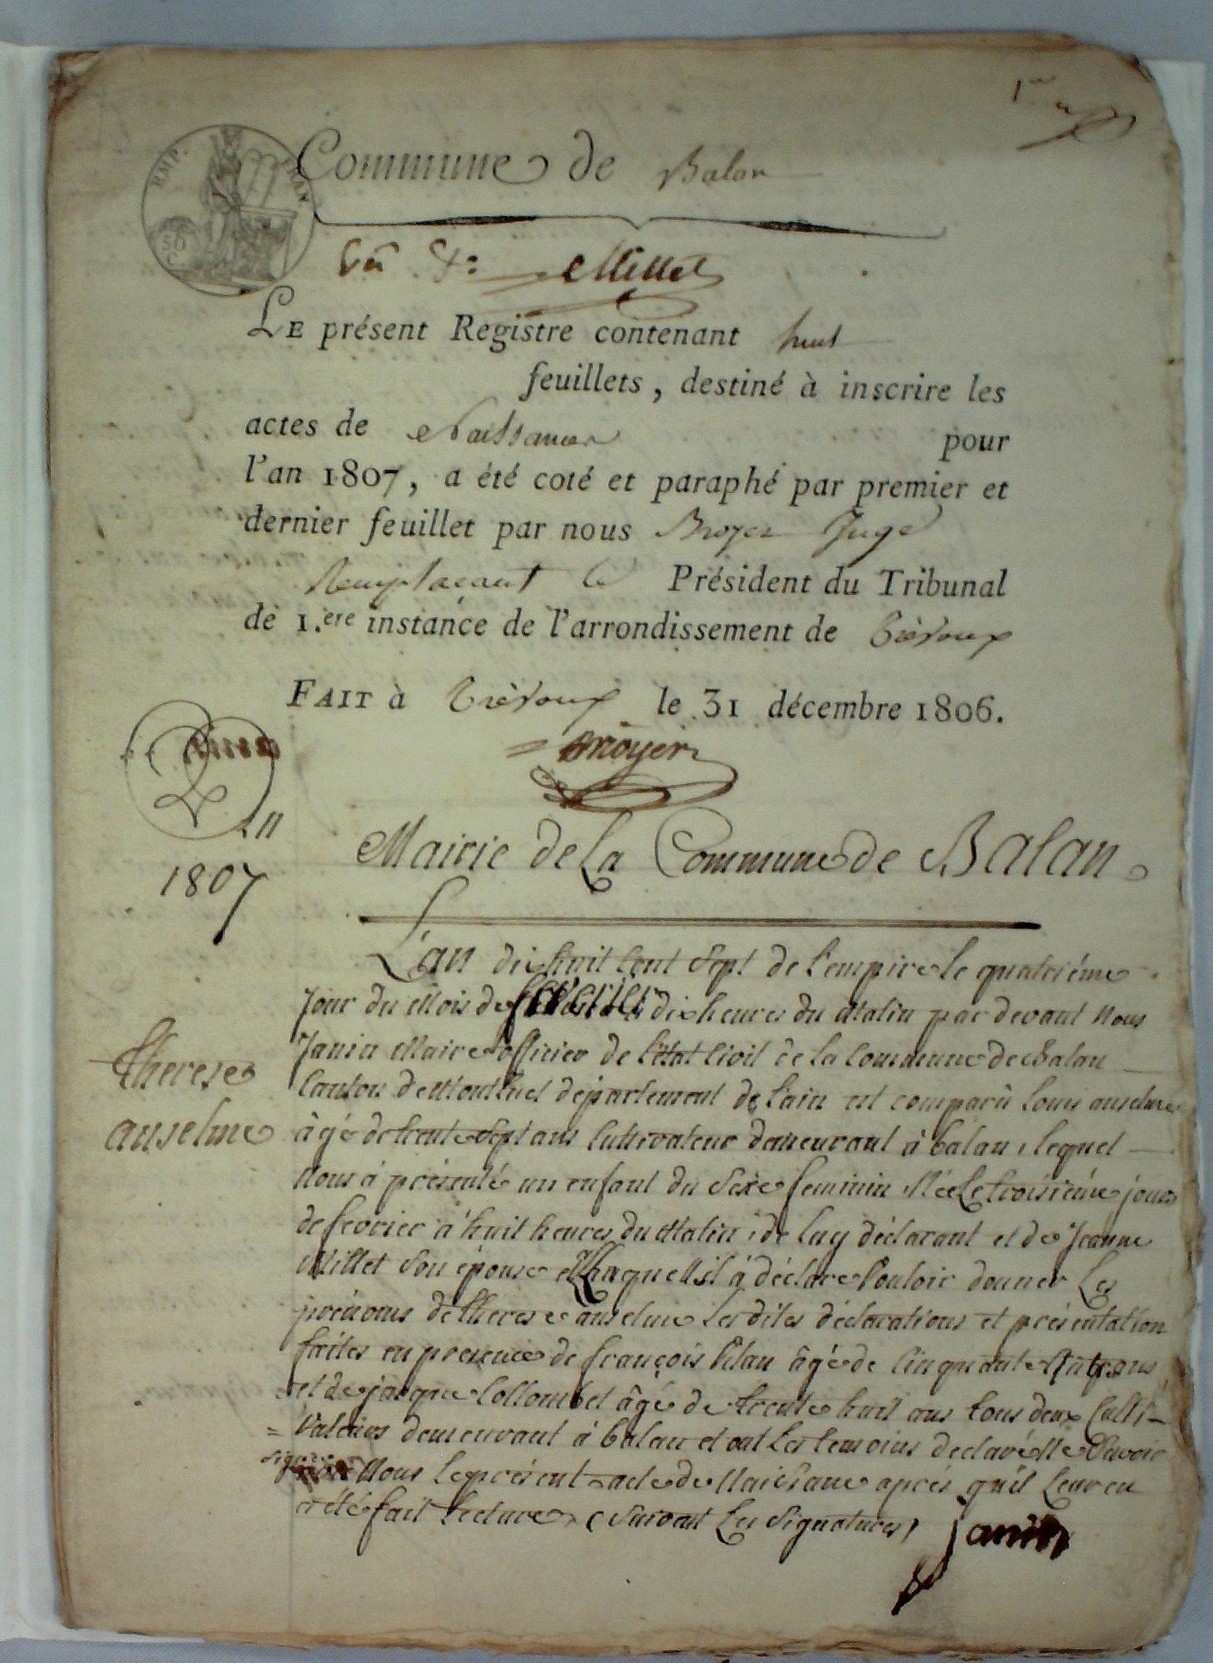 1er
EMP. FRAN
50
C
Commune de Balan
Millet
LE présent Registre contenant huit
feuillets, destiné à inscrire les
actes de Naissances pour
l'an 1807, a été coté et paraphé par premier et
dernier feuillet par nous Broyer Juge
Remplaçant le Président du Tribunal
de 1.ere instance de l'arrondissement de Trévoux
FAIT à Trévoux le 31 décembre 1806.
Broyer
An
1807
Mairie de La Commune de Balan
L'an dix huit cent sept de l'empire le quatriéme
jour du Mois de fevrier à dix heures du Matin par devant Nous
Janin Maire officier de l'état Civil de la Commune de Balan
Canton de Montluel département de l'ain est comparû Louis anselme
Therese
anselme
âgé de trente sept ans Cultivateur demeurant à balan, lequel
Nous à présenté un enfant du Sexe feminin Née Le troisiéme jour
de fevrier à huit heures du Matin, de luy déclarant et de Jeanne
Millet Son épouse et Auquel il à déclaré Vouloir donner Les
prénoms de therese anselme Les dites déclarations et présentation
faites en presence de françois Pilan âgé de Cinquante ans
et de jacque Collombet âgé de trente huit ans tous deux Culti-
= Vateurs demeurant à balan et ont Les temoins declaré Ne Savoir
signer Nous le présent acte de Naissance aprés qu'il Leur en
a été fait Lecture, (Suivent Les Signatures)
janin